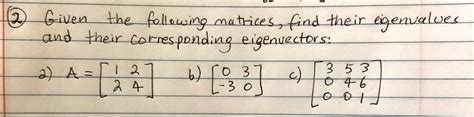 ② Given the following matrices, find their eigenvalues
and their corresponding eigenvectors:
a) A = [1 2; 2 4] b) [0 3; -3 0] c) [3 5 3; 0 4 6; 0 0 1]